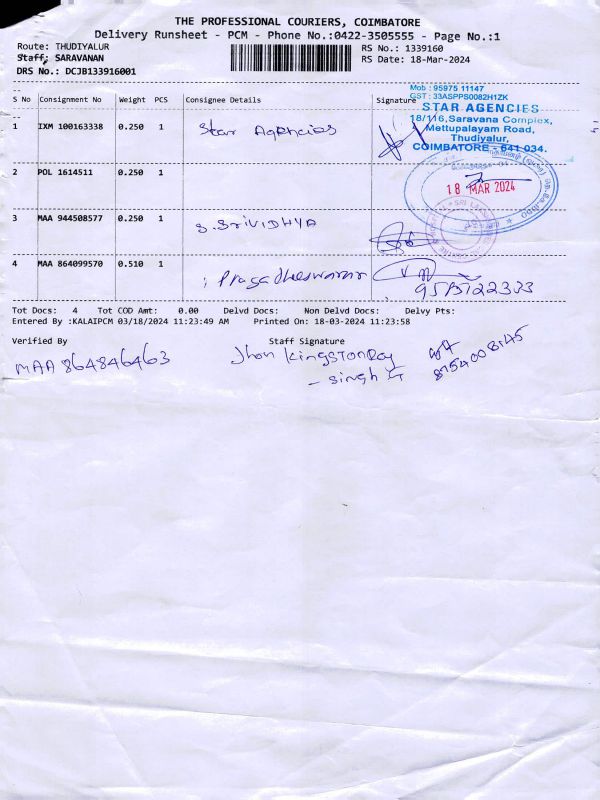 THE PROFESSIONAL COURIERS, COIMBATORE
Delivery Runsheet - PCM - Phone No.:0422-3505555 - Page No.:1
Route: THUDIYALUR RS No.: 1339160
Staff: SARAVANAN RS Date: 18-Mar-2024
DRS No.: DCJB133916001
S No Consignment No Weight PCS Consignee Details Signature
Mob : 95975 11147
GST : 33ASPPS0082H1ZK
STAR AGENCIES
18/116, Saravana Complex,
Mettupalayam Road,
Thudiyalur,
COIMBATORE - 641 034.
1 IXM 100163338 0.250 1 Star Agencies
2 POL 1614511 0.250 1
18 MAR 2024
3 MAA 944508577 0.250 1 S. SRIVIDHYA
4 MAA 864099570 0.510 1 ; Pragadheeswaran
Tot Docs: 4 Tot COD Amt: 0.00 Delvd Docs: Non Delvd Docs: Delvy Pts:
Entered By :KALAIPCM 03/18/2024 11:23:49 AM Printed On: 18-03-2024 11:23:58
Verified By Staff Signature
MAA 864846463 Jhon Kingston Roy
- Singh G